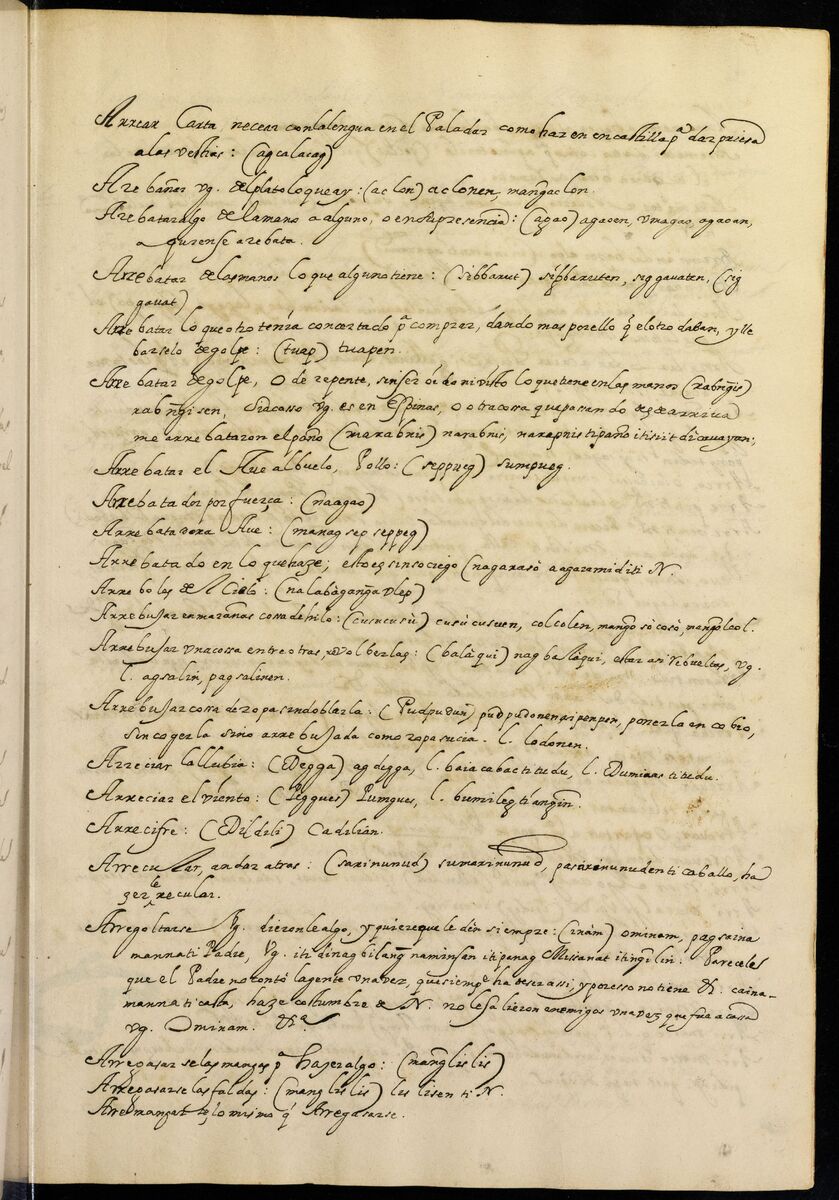 Arrear Carta, necear con la lengua en el Paladar como hazen en castilla pª dar priesa
a las vestias: (agcalacag)
Arebañar vg. del plato lo que ay: (aclon) aclonen, mang̃aclon.
Arebatar algo de la mano a alguno, o en su presencia: (agao) agaoen, vmagao, agaoan,
a quien se arebata.
Arrebatar de las manos lo que alguno tiene: (sibbarut) sibbaruten, siggavaten, (sig
gavat)
Arrebatar lo que otro tenia concertado pª comprar, dando mas por ello q̃ el otro daban, y lle
barselo de golpe: (tuap) tuapen.
Arrebatar de golpe, o de repente, sin ser oido ni visto lo que tiene en las manos (rabng̃is)
rabng̃isen, si acasso vg. es en Espinas, o otra cossa que pasando de arriva
me arrebataron el paño (marabnis) narabnis, narapnis ti paño iti siit
Arrebatar el Ave al buelo, Pollo: (seppeg) sumpueg.
Arrebatador por fuerça: (naagao)
Arrebatadora Ave: (managsepseppeg)
Arrebatado en lo que haze; esto es sin sociego (nagarasò a agaramid iti N.
Arreboles del Cielo: (nalabàgang̃a Vlep)
Arrebujar enmarañar cossa de hilo: (cusucusù) cusùcusuen, colcolen, mang̃osòcosò, mang̃olcol.
Arrebujar vna cossa entre otras, rebolberlas: (balàqui) nagbalàqui, estar asi rebueltas, vg.
l. agsalin, pagsalinen.
Arrebujar cossa de ropa sin doblarla: (Pudpudun) pudpudonen, ponerla en cobro,
sin cogerla sino arrebujada como ropa sucia. l. lodonen.
Arreciar la llubia: (Degga) agdegga, l. ti tudu, l. ti tudu.
Arreciar el viento: (Pegques) Pumgues, l. bumileg ti ang̃in.
Arrecife: (Dildili) Cadilian.
Arrecular, andar atras: (sarinunud) sumarinunud, pasarinunuden ti caballo, ha
zerle recular.
Arregoltarse Vg. dieronle algo, y quiere que le dèn siempre: (inàm) ominam, pagsaina
mannati Padre, Vg. iti dinagbilang̃ naminsan iti panag Missanat iting̃ilin: Pareceles
que el Padre no contò la gente vna vez, que siempᵉ ha de ser assi, y por esso no tiene &. caina-
mannati casta, haze costumbre de N. no le salieron enemigos vna vez que fue a cassa
vg. Ominam. &ª.
Arregasarse las mangas pª hazer algo: (mang̃lislis)
Arregasarse las faldas: (mang̃lislis) lislisen ti N.
Arremangar es lo mismo q̃ Arregasarse.